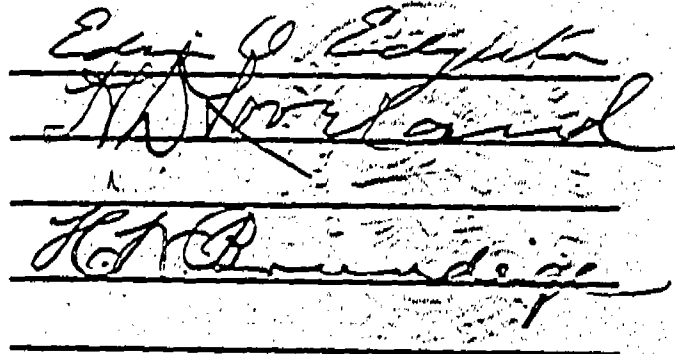 Edwin O Edgerton
H D Loveland
H. W. Brundige